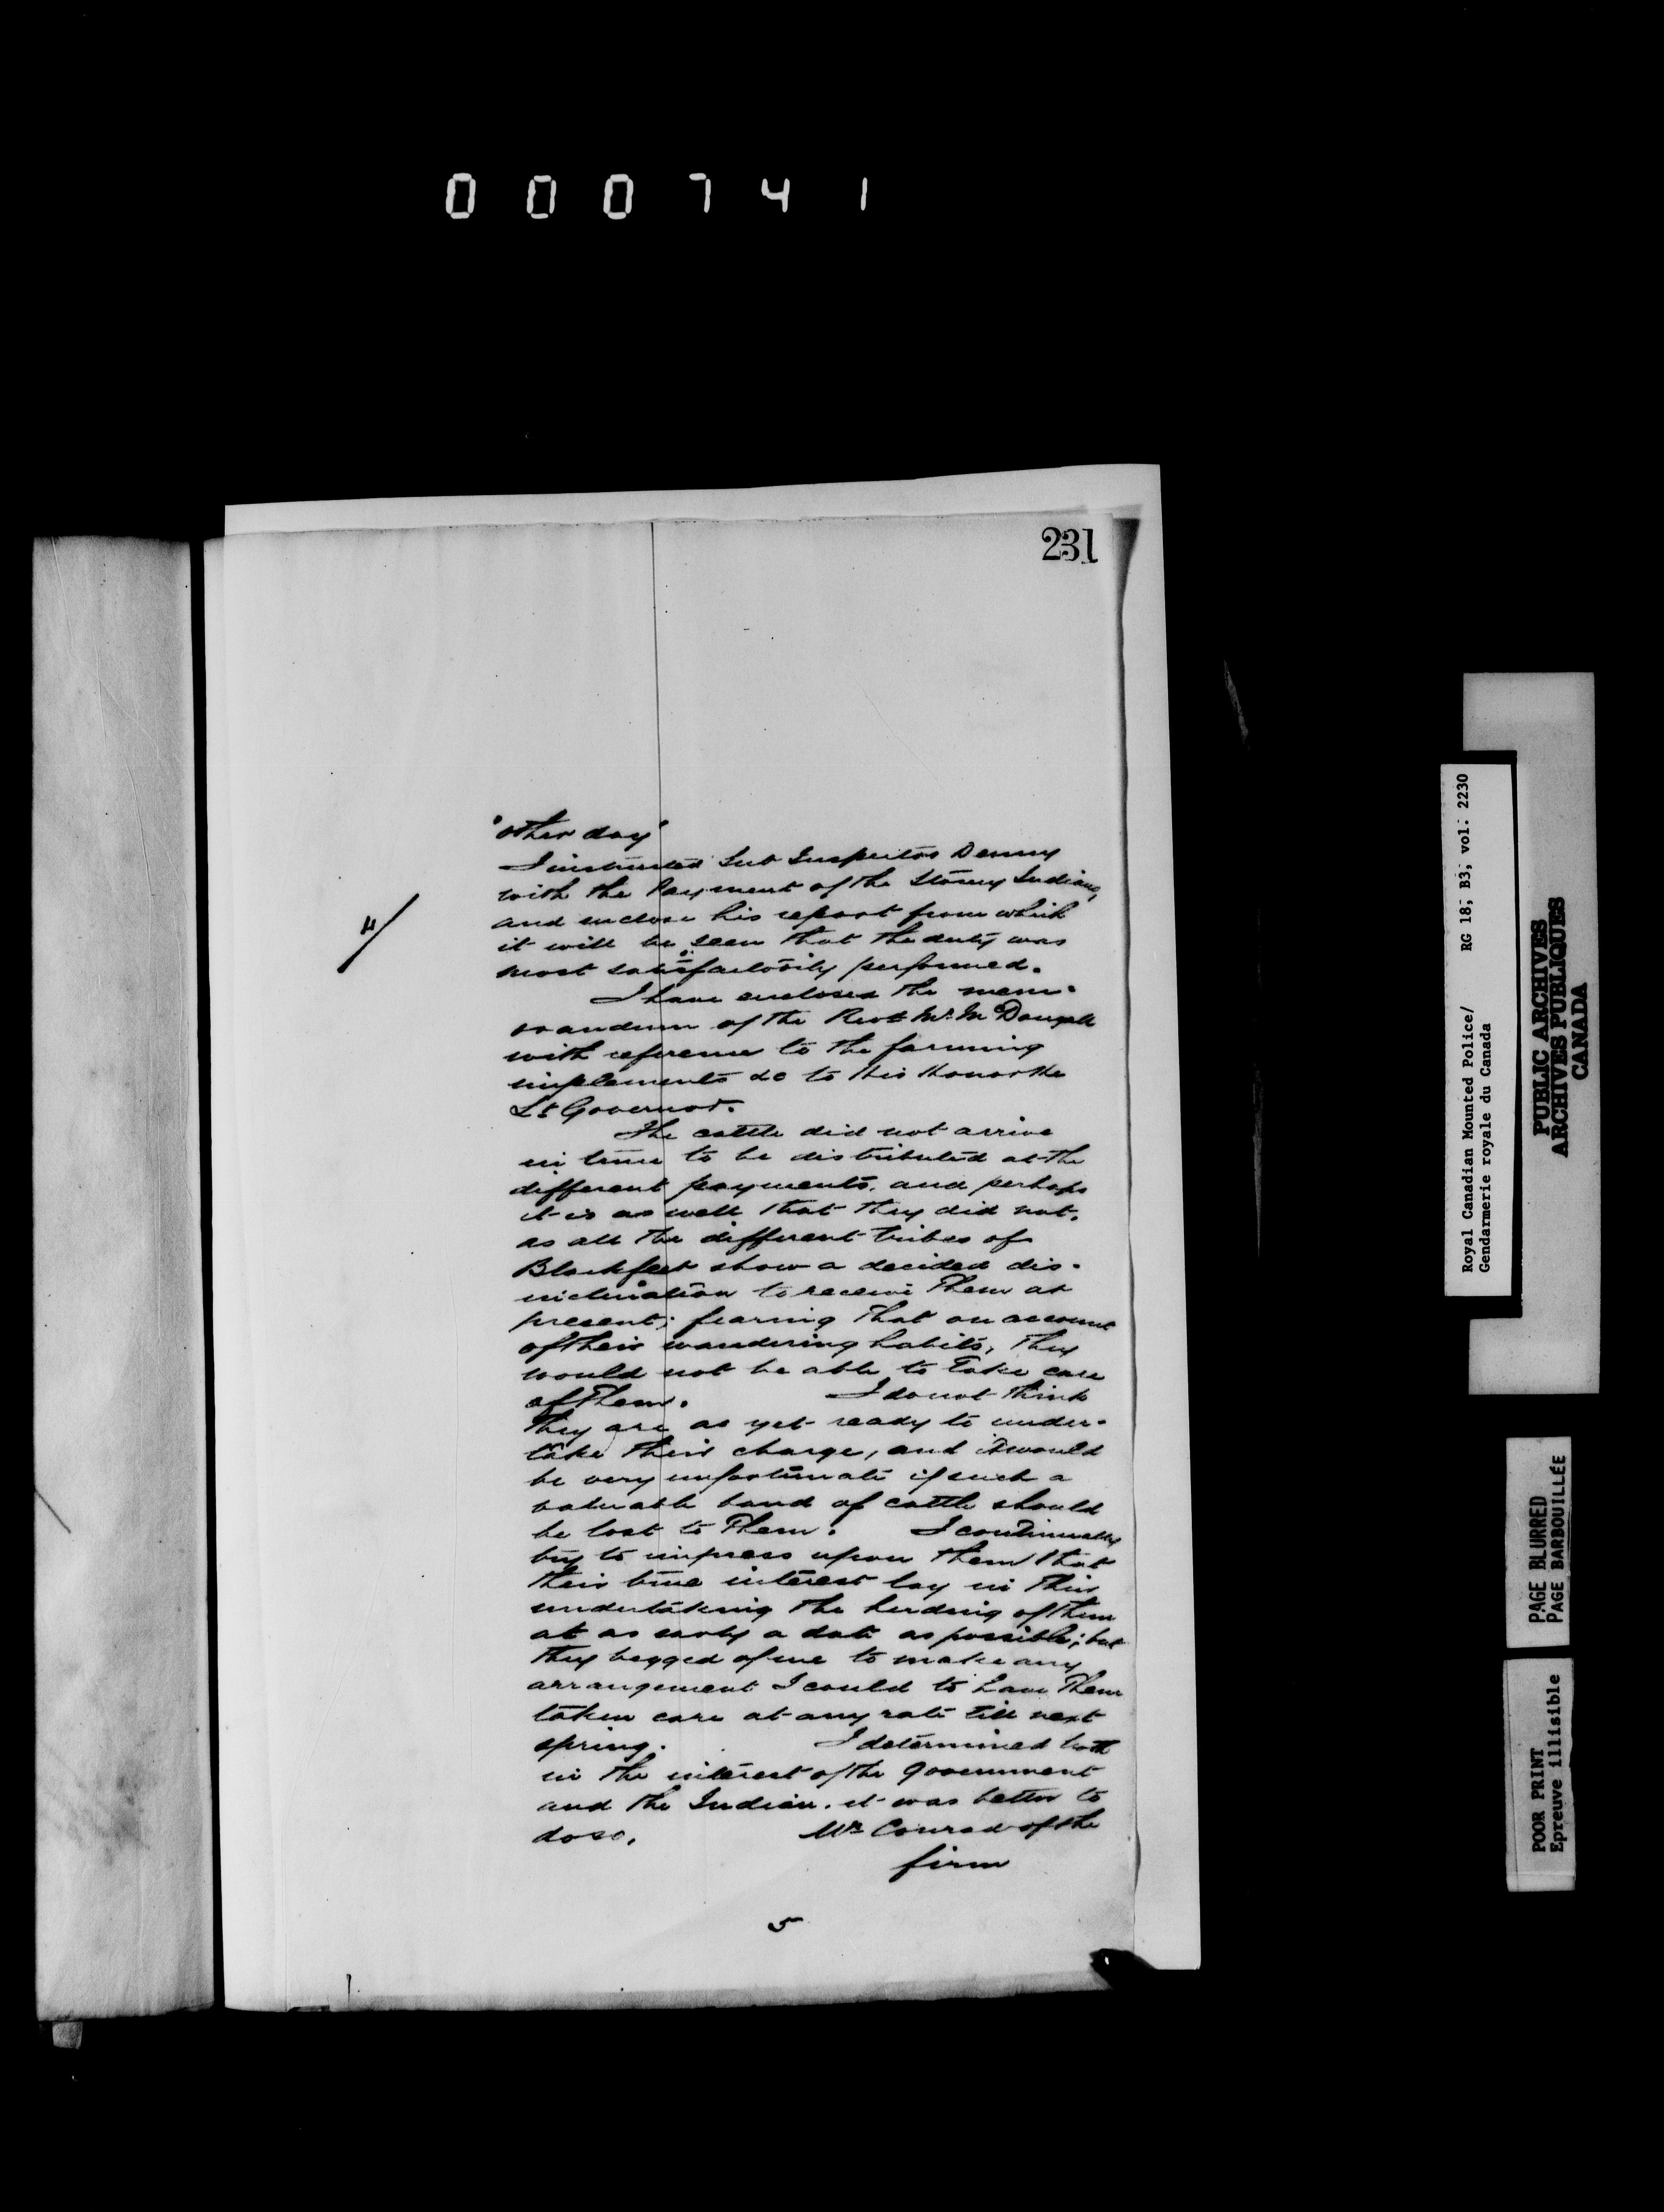 000741
231
4/
"other day"
I instructed Sub Inspector Denny
with the Payment of the Stoney Indians,
and enclose his report from which
it will be seen that the duty was
most satisfactorily performed.
I have enclosed the mem-
orandum of the Revd Mr. McDougall
with reference to the farming
implements &c to His Honor the
Lt Governor.
The cattle did not arrive
in time to be distributed at the
different payments, and perhaps
it is as well that they did not,
as all the different tribes of
Blackfeet show a decided dis-
inclination to receive them at
present; fearing that on account
of their wandering habits, they
would not be able to take care
of them. I do not think
they are as yet ready to under-
take their charge, and it would
be very unfortunate if such a
valuable band of cattle should
be lost to them. I continually
try to impress upon them that
their true interest lay in their
undertaking the herding of them
at as early a date as possible; but
they begged of me to make any
arrangement I could to have them
taken care at any rate till next
spring. I determined both
in the interest of the Government
and the Indian, it was better to
do so. Mr Conrad of the
firm
5
Royal Canadian Mounted Police/ RG 18, B3, vol. 2230
Gendarmerie royale du Canada
PUBLIC ARCHIVES
ARCHIVES PUBLIQUES
CANADA
PAGE BLURRED
PAGE BARBOUILLÉE
POOR PRINT
Epreuve illisible